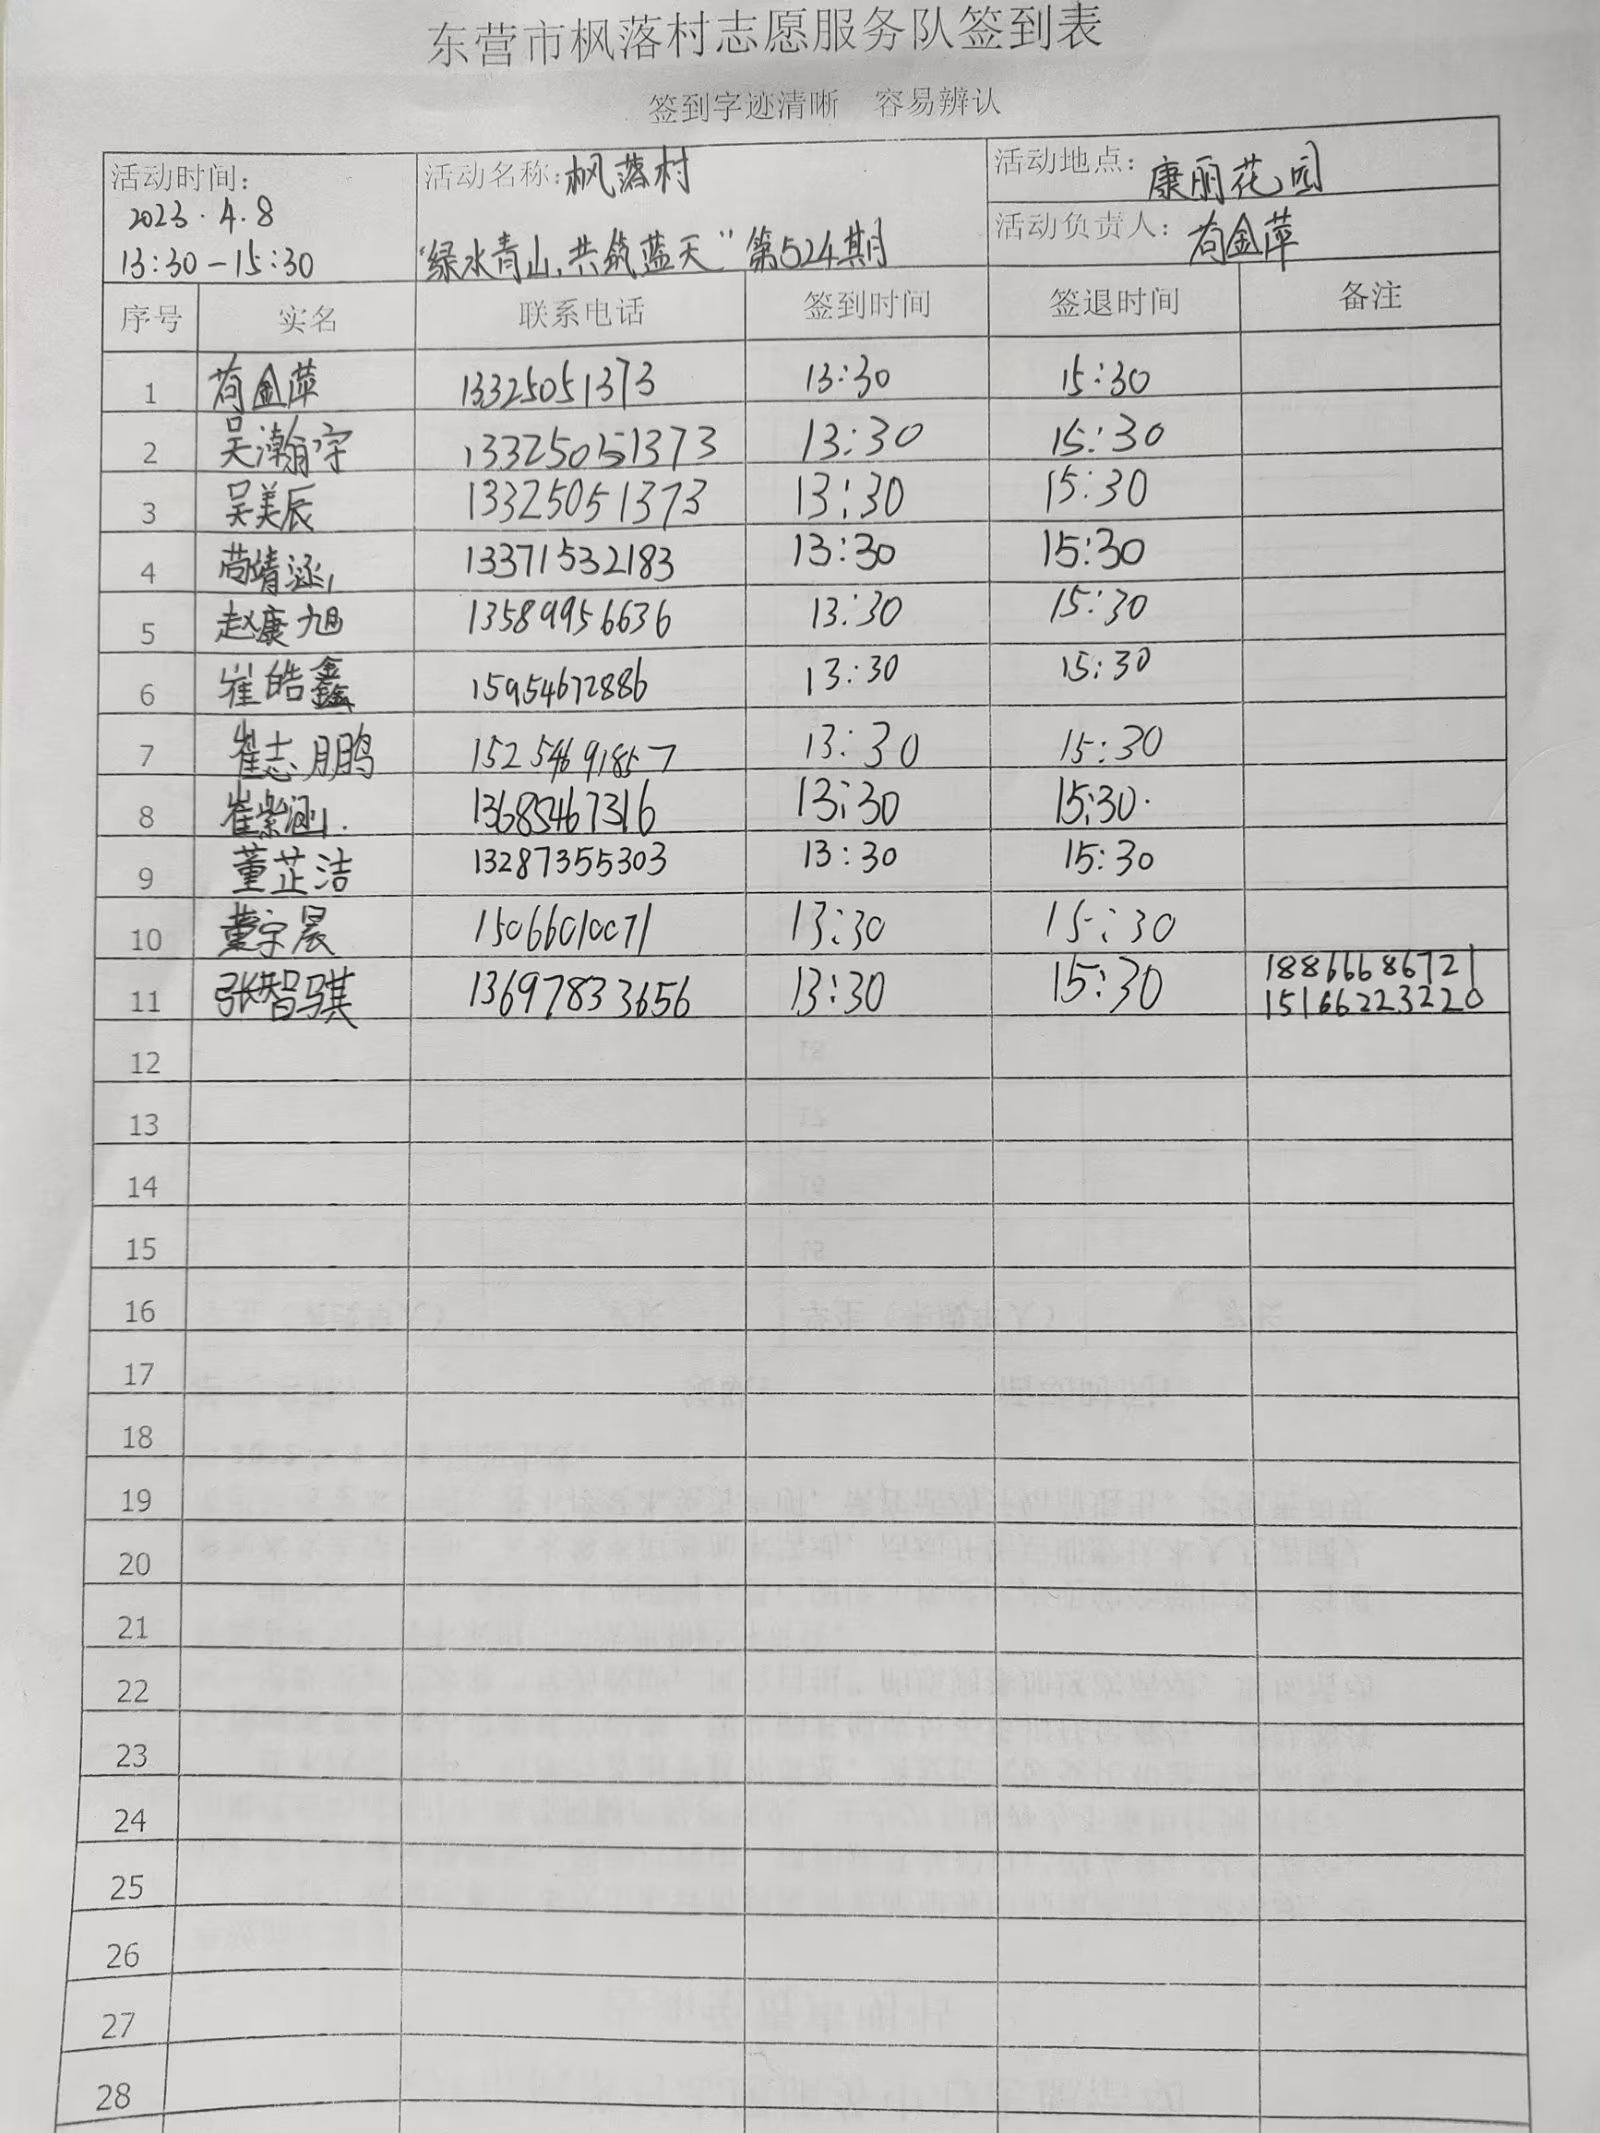 东营市枫落村志愿服务队签到表
签到字迹清晰 容易辨认
活动时间: 2023.4.8 13:30-15:30
活动名称:枫落村
"绿水青山,共筑蓝天"第524期
活动地点: 康丽花园
活动负责人: 苟金萍
序号 实名 联系电话 签到时间 签退时间 备注
1 苟金萍 13325051373 13:30 15:30
2 吴瀚宇 13325051373 13:30 15:30
3 吴美辰 13325051373 13:30 15:30
4 苟靖涵 13371532183 13:30 15:30
5 赵康旭 13589956636 13:30 15:30
6 崔皓鑫 15954672886 13:30 15:30
7 崔志鹏 15254691857 13:30 15:30
8 崔紫涵 13685467316 13:30 15:30
9 董芷洁 13287355303 13:30 15:30
10 董宇晨 15066010071 13:30 15:30
11 张智骐 13697833656 13:30 15:30 18866686721
15166223220
12
13
14
15
16
17
18
19
20
21
22
23
24
25
26
27
28